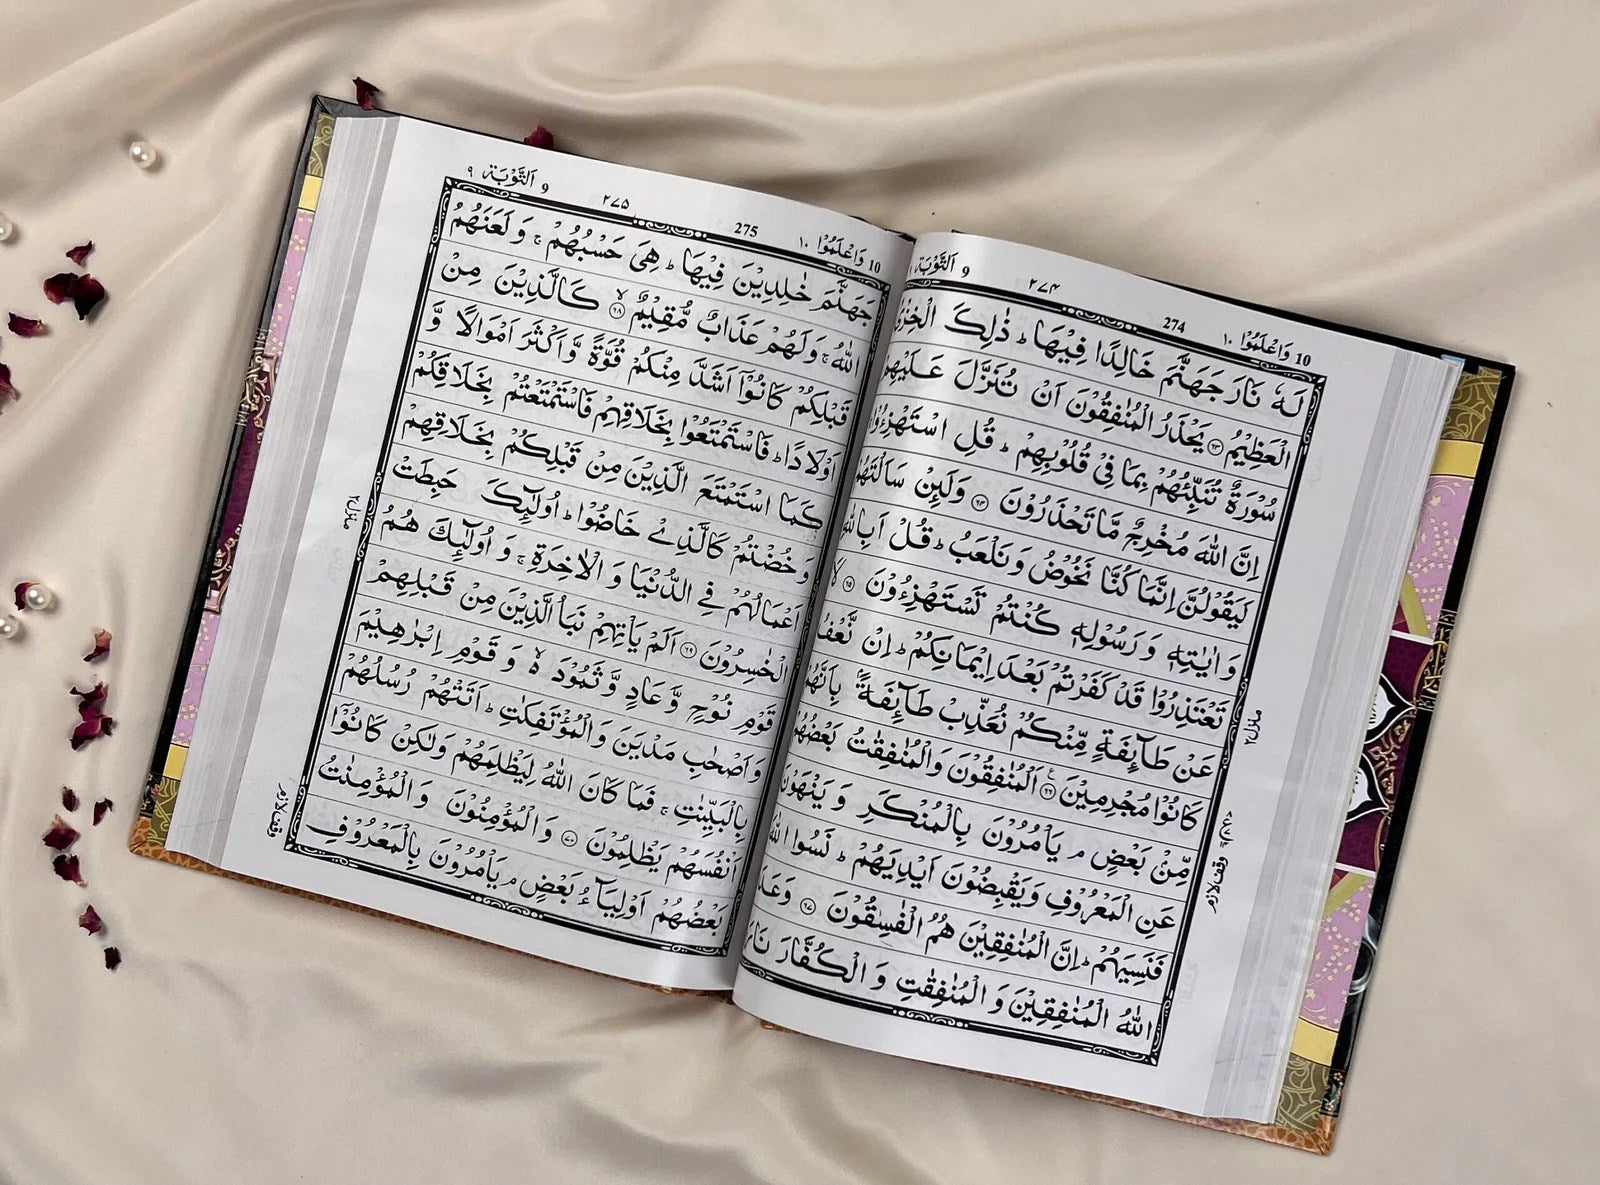 10 وَاعْلَمُوْا ١٠ 274 ٢٧٤ 9 اَلتَّوْبَة
لَهٗ نَارَ جَهَنَّمَ خَالِدًا فِيْهَا ؕ ذٰلِكَ
الْعَظِيْمُ ﴿٦٣﴾ يَحْذَرُ الْمُنٰفِقُوْنَ اَنْ تُنَزَّلَ عَلَيْهِمْ
سُوْرَةٌ تُنَبِّئُهُمْ بِمَا فِيْ قُلُوْبِهِمْ ؕ قُلِ اسْتَهْزِءُوْا
اِنَّ اللّٰهَ مُخْرِجٌ مَّا تَحْذَرُوْنَ ﴿٦٤﴾ وَلَئِنْ سَاَلْتَهُمْ
لَيَقُوْلُنَّ اِنَّمَا كُنَّا نَخُوْضُ وَنَلْعَبُ ؕ قُلْ اَبِاللّٰهِ
وَاٰيٰتِهٖ وَرَسُوْلِهٖ كُنْتُمْ تَسْتَهْزِءُوْنَ ﴿٦٥﴾ لَا
تَعْتَذِرُوْا قَدْ كَفَرْتُمْ بَعْدَ اِيْمَانِكُمْ ؕ اِنْ نَّعْفُ
عَنْ طَآئِفَةٍ مِّنْكُمْ نُعَذِّبْ طَآئِفَةًۢ بِاَنَّهُمْ
كَانُوْا مُجْرِمِيْنَ ﴿٦٦﴾ اَلْمُنٰفِقُوْنَ وَالْمُنٰفِقٰتُ بَعْضُهُمْ
مِّنْۢ بَعْضٍ ۘ يَاْمُرُوْنَ بِالْمُنْكَرِ وَيَنْهَوْنَ
عَنِ الْمَعْرُوْفِ وَيَقْبِضُوْنَ اَيْدِيَهُمْ ؕ نَسُوا اللّٰهَ
فَنَسِيَهُمْ ؕ اِنَّ الْمُنٰفِقِيْنَ هُمُ الْفٰسِقُوْنَ ﴿٦٧﴾ وَعَدَ
اللّٰهُ الْمُنٰفِقِيْنَ وَالْمُنٰفِقٰتِ وَالْكُفَّارَ نَارَ
منزل ٢
وقف لازم
10 وَاعْلَمُوْا ١٠ 275 ٢٧٥ 9 اَلتَّوْبَة ٩
جَهَنَّمَ خٰلِدِيْنَ فِيْهَا ؕ هِيَ حَسْبُهُمْ ۚ وَلَعَنَهُمُ
اللّٰهُ ۚ وَلَهُمْ عَذَابٌ مُّقِيْمٌ ﴿٦٨﴾ ۙ كَالَّذِيْنَ مِنْ
قَبْلِكُمْ كَانُوْۤا اَشَدَّ مِنْكُمْ قُوَّةً وَّاَكْثَرَ اَمْوَالًا وَّ
اَوْلَادًا ؕ فَاسْتَمْتَعُوْا بِخَلَاقِهِمْ فَاسْتَمْتَعْتُمْ بِخَلَاقِكُمْ
كَمَا اسْتَمْتَعَ الَّذِيْنَ مِنْ قَبْلِكُمْ بِخَلَاقِهِمْ
وَخُضْتُمْ كَالَّذِيْ خَاضُوْا ؕ اُولٰٓئِكَ حَبِطَتْ
اَعْمَالُهُمْ فِي الدُّنْيَا وَالْاٰخِرَةِ ۚ وَاُولٰٓئِكَ هُمُ
الْخٰسِرُوْنَ ﴿٦٩﴾ اَلَمْ يَاْتِهِمْ نَبَاُ الَّذِيْنَ مِنْ قَبْلِهِمْ
قَوْمِ نُوْحٍ وَّعَادٍ وَّثَمُوْدَ ۙ۬ وَقَوْمِ اِبْرٰهِيْمَ
وَاَصْحٰبِ مَدْيَنَ وَالْمُؤْتَفِكٰتِ ؕ اَتَتْهُمْ رُسُلُهُمْ
بِالْبَيِّنٰتِ ۚ فَمَا كَانَ اللّٰهُ لِيَظْلِمَهُمْ وَلٰكِنْ كَانُوْۤا
اَنْفُسَهُمْ يَظْلِمُوْنَ ﴿٧٠﴾ وَالْمُؤْمِنُوْنَ وَالْمُؤْمِنٰتُ
بَعْضُهُمْ اَوْلِيَآءُ بَعْضٍ ۘ يَاْمُرُوْنَ بِالْمَعْرُوْفِ
منزل ٢
وقف لازم